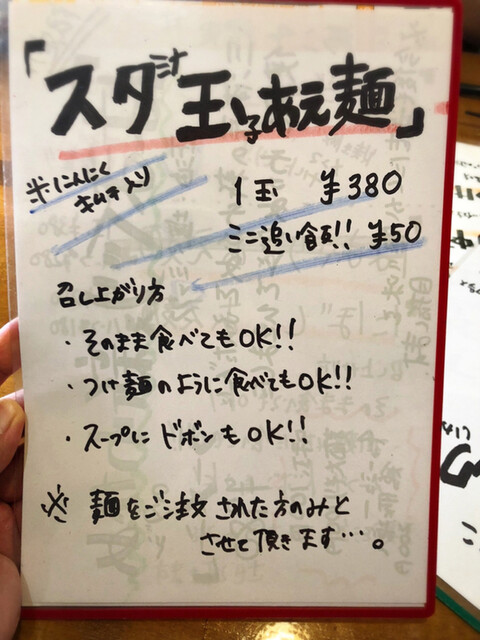 「スタミナ王子あえ麺」
※にんにく
キムチ入り
1玉 ¥380
ミニ追い飯!! ¥50
召し上がり方
・そのまま食べてもOK!!
・つけ麺のように食べてもOK!!
・スープにドボンもOK!!
※麺をご注文された方のみと
させて頂きます…。